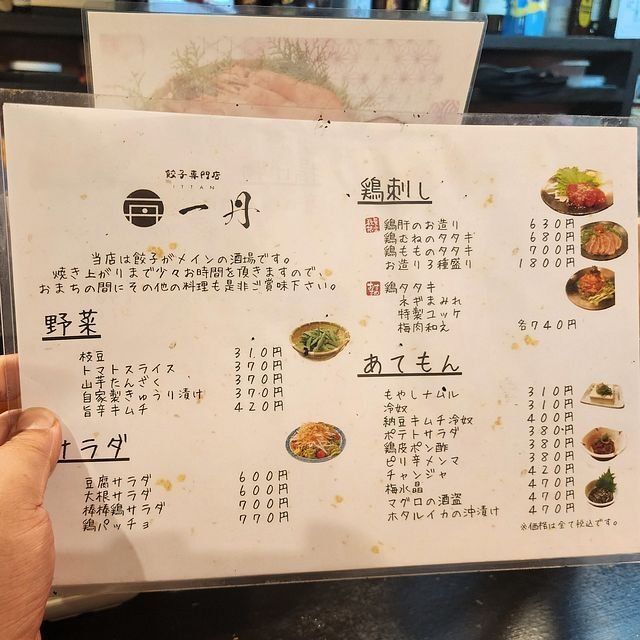 餃子専門店
ITTAN
一丹
当店は餃子がメインの酒場です。
焼き上がりまで少々お時間を頂きますので、
おまちの間にその他の料理も是非ご賞味下さい。
野菜
枝豆 310円
トマトスライス 370円
山芋たんざく 370円
自家製きゅうり漬け 370円
旨辛キムチ 420円
サラダ
豆腐サラダ 600円
大根サラダ 600円
棒棒鶏サラダ 700円
鶏パッチョ 770円
鶏刺し
鶏肝のお造り 630円
鶏むねのタタキ 680円
鶏もものタタキ 700円
お造り3種盛り 1800円
鶏タタキ
ネギまみれ
特製ユッケ
梅肉和え 各740円
あてもん
もやしナムル 310円
冷奴 310円
納豆キムチ冷奴 400円
ポテトサラダ 380円
鶏皮ポン酢 380円
ピリ辛メンマ 380円
チャンジャ 420円
梅水晶 470円
マグロの酒盗 470円
ホタルイカの沖漬け 470円
※価格は全て税込です。